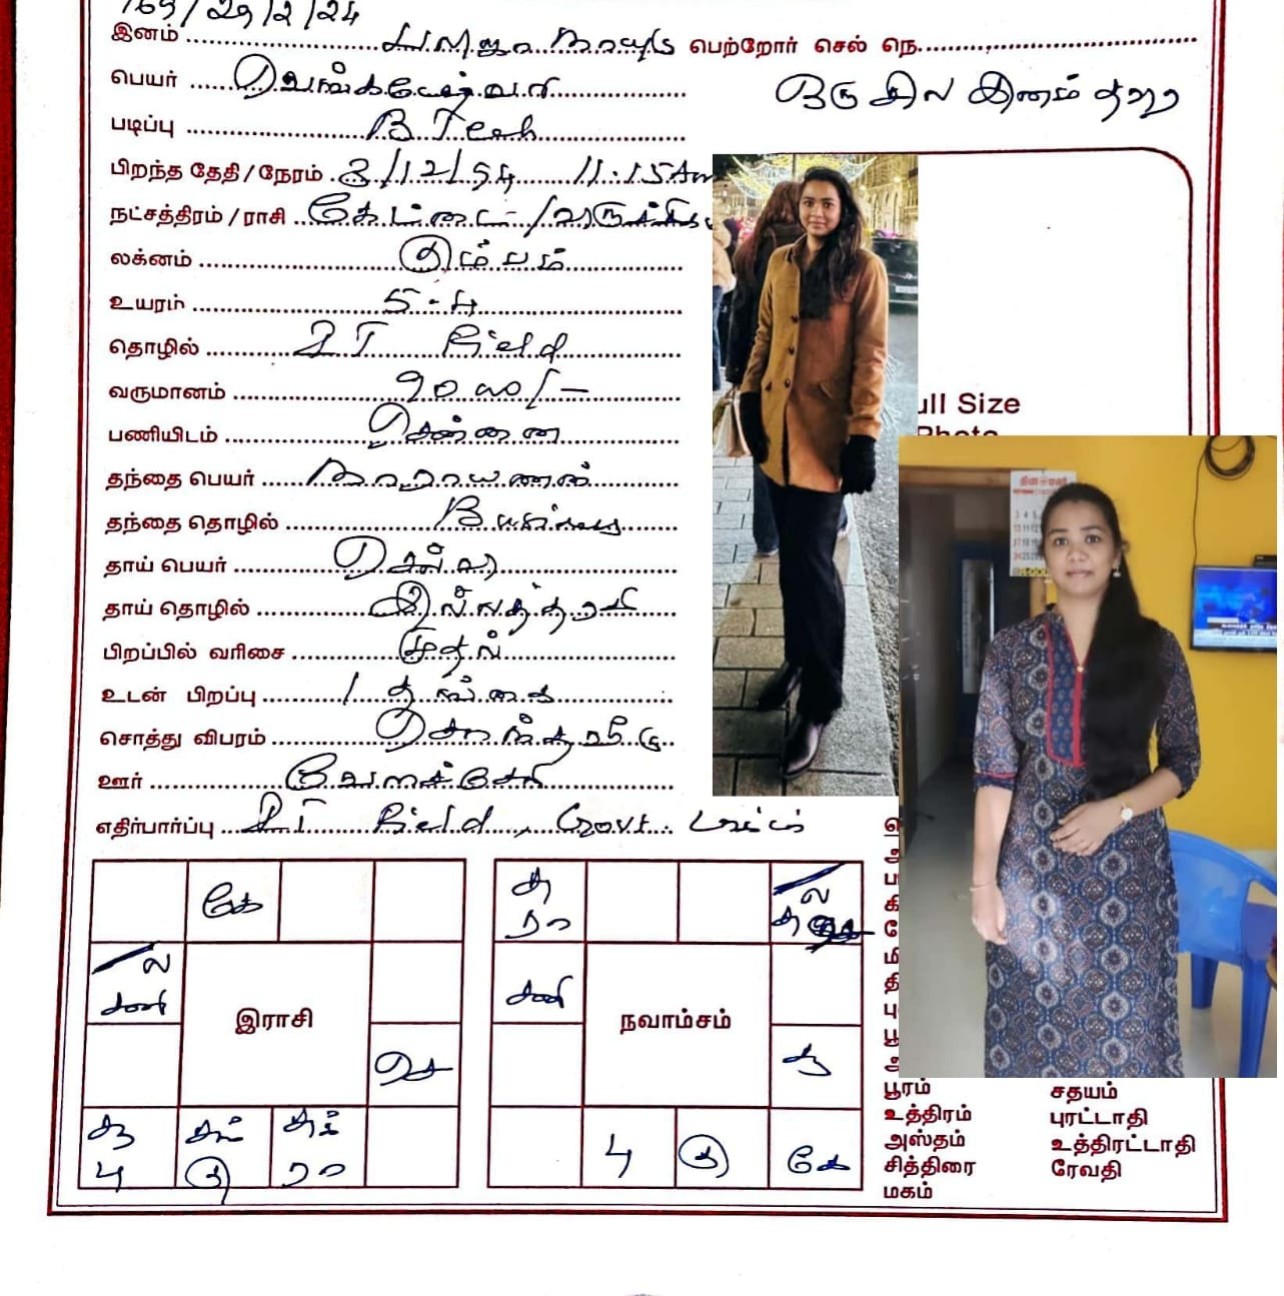 169/29/2/24
இனம் பலிஜா நாயுடு பெற்றோர் செல் நெ.
பெயர் வெங்கடேஸ்வரி
ஒரு சில இனம் தவிர
படிப்பு B Tech
பிறந்த தேதி / நேரம் 3/12/94 11.15 Am
நட்சத்திரம் / ராசி கேட்டை / விருச்சிகம்
லக்னம் கும்பம்
உயரம் 5-4
தொழில் IT Field
வருமானம் 90000/-
ull Size
Photo
பணியிடம் சென்னை
தந்தை பெயர் நாராயணன்
தந்தை தொழில் Business
தாய் பெயர் செல்வி
தாய் தொழில் இல்லத்தரசி
பிறப்பில் வரிசை முதல்
உடன் பிறப்பு 1 தங்கை
சொத்து விபரம் சொந்த வீடு
ஊர் வேளச்சேரி
எதிர்பார்ப்பு IT Field, Govt.
கே
ச
ரா
ல
ல
சனி
சனி
இராசி
நவாம்சம்
செ
சூ
பு
சந்
கு
சுக்
ரா
பு
கு
கே
பூரம் சதயம்
உத்திரம் புரட்டாதி
அஸ்தம் உத்திரட்டாதி
சித்திரை ரேவதி
மகம்